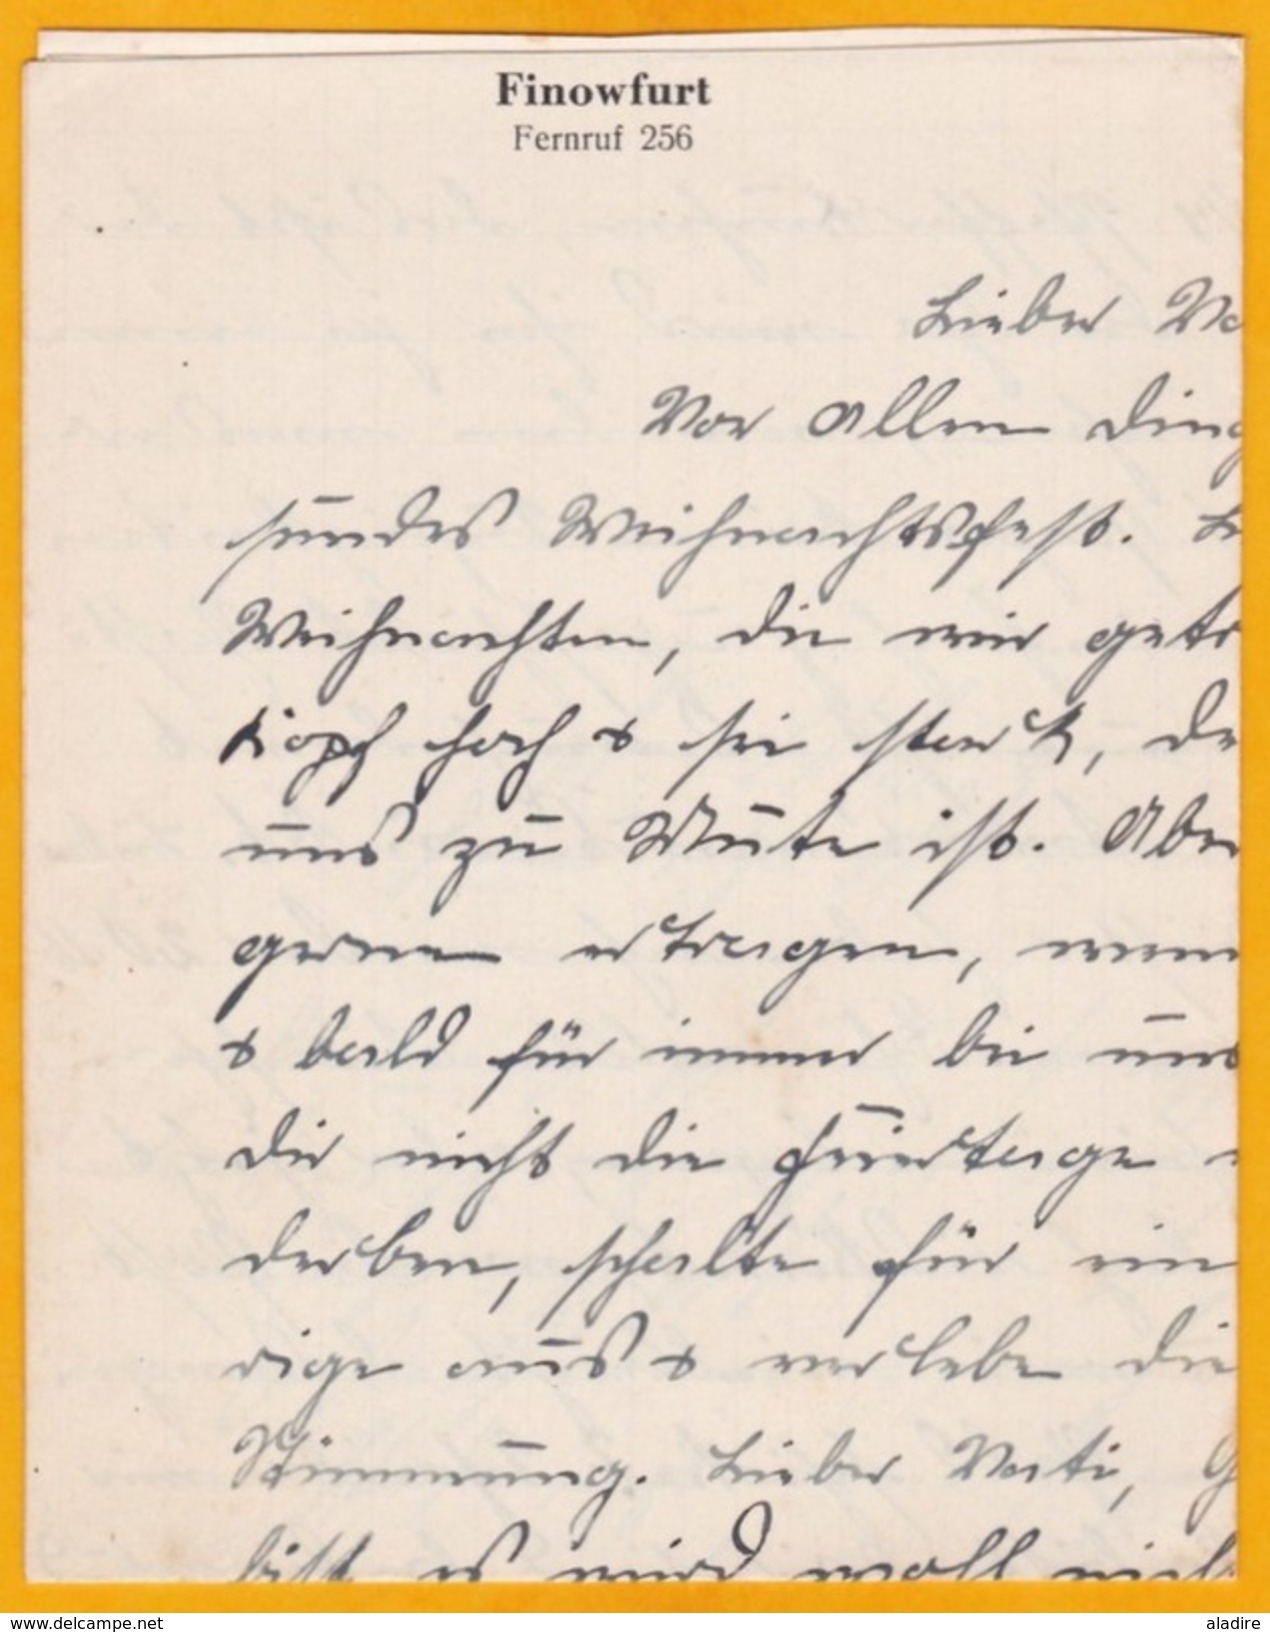 Finowfurt
Fernruf 256
Lieber Va
Vor Allen Ding
sundes Weihnachtsfest.
Weihnachten, die wir getr
Kopf hoch & sei stark, de
uns zu Mute ist. Aber
gerne ertragen, wenn
& bald für immer bei uns
dir nicht die Feiertage
derben, schalte für ein
rige aus & verlebe die
Stimmung. Lieber Vati, G
bist es wird wohl nich
delcampe.net
aladire